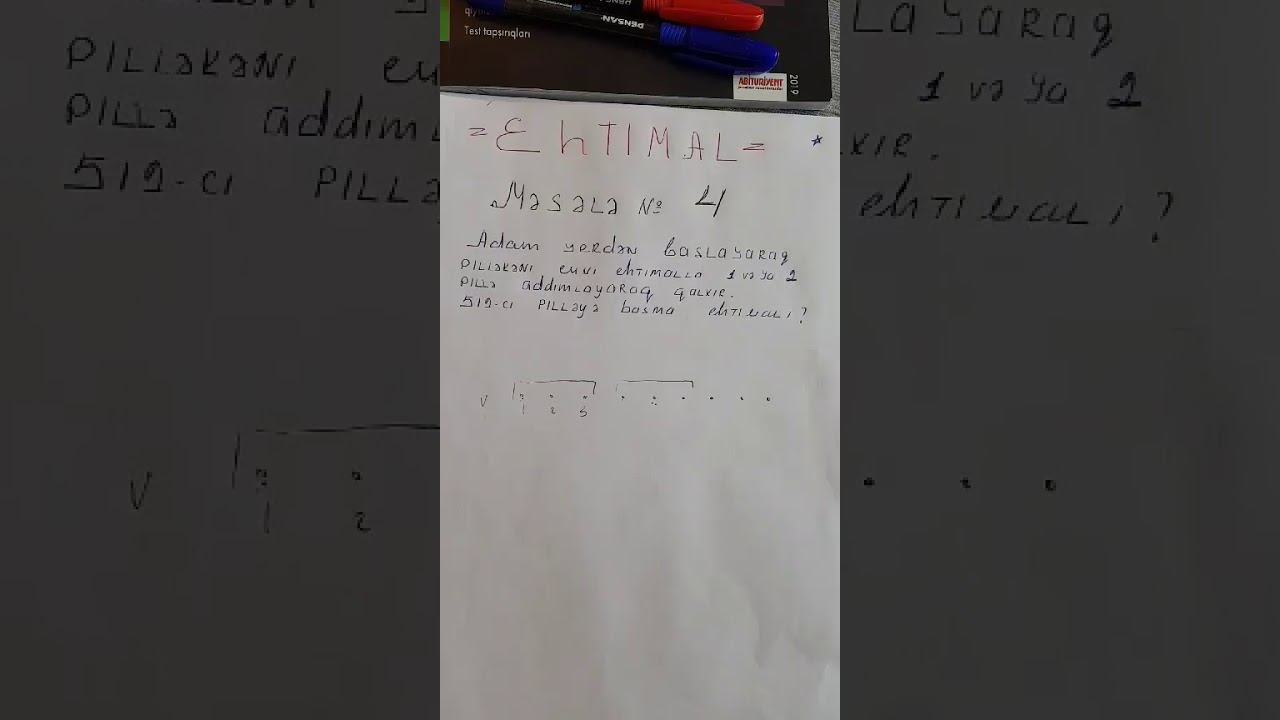 Test tapşırıqları
PENSAN
ABİTURİYENT
2019
= EhTIMAL =
*
Məsələ № 4
Adam yerdən başlayaraq
pilləkəni eyni ehtimalla 1 və ya 2
pillə addımlayaraq qalxır.
519-cı pilləyə basma ehtimalı?
V
1 2 3